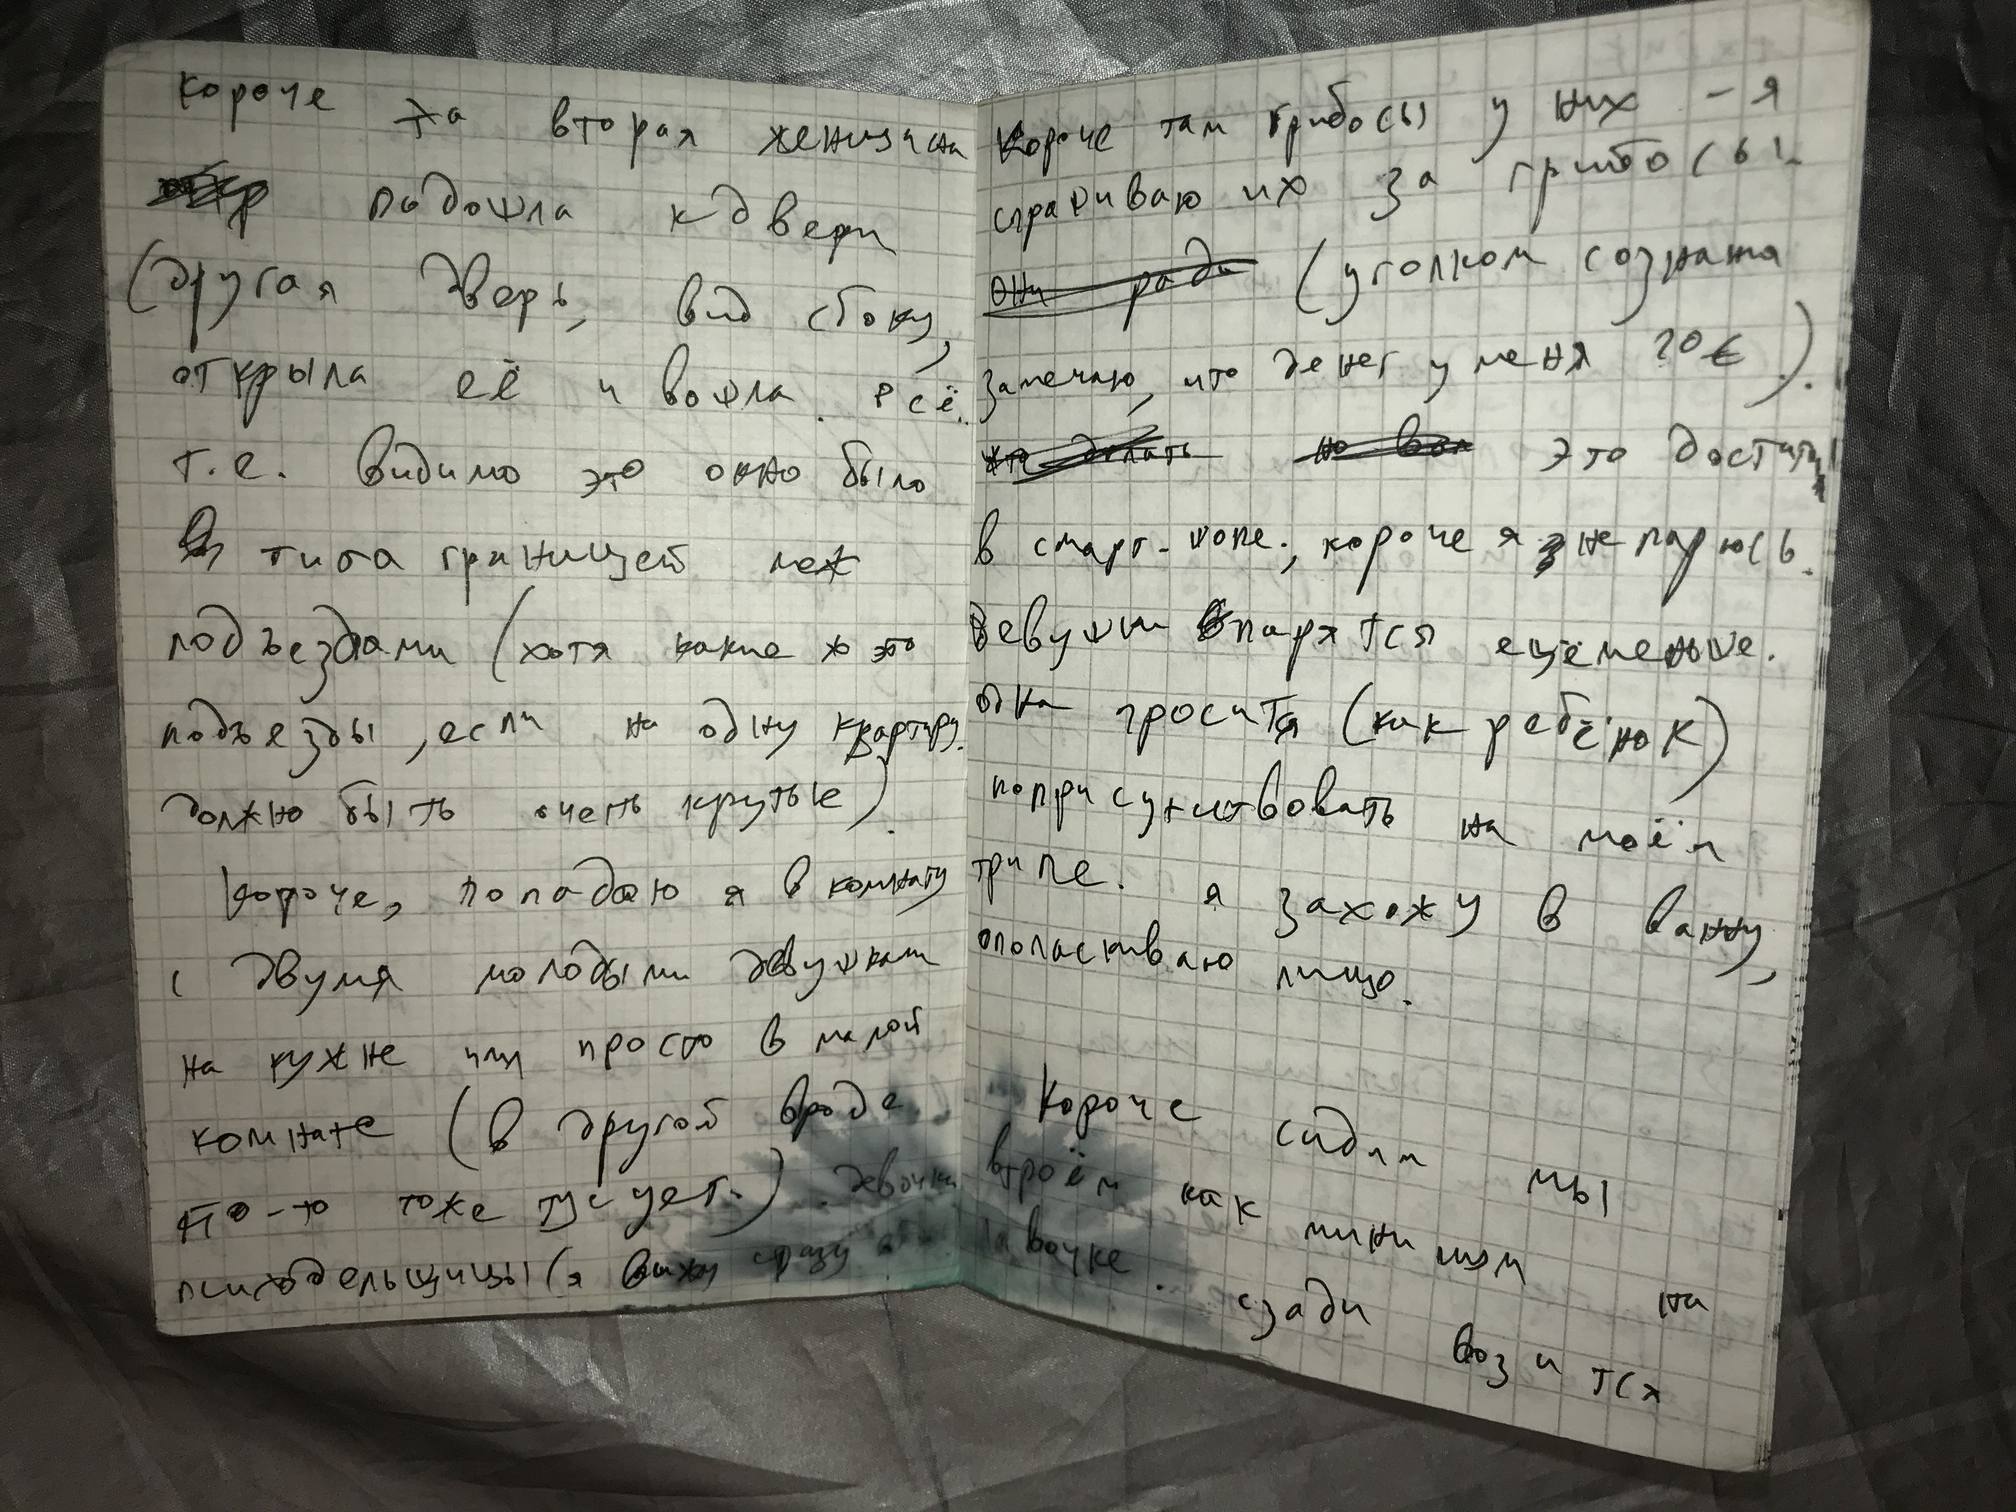 короче та вторая женщина
подошла к двери
(другая дверь, вид сбоку,
открыла её и вошла. всё.
т.е. видимо это окно было
типа границей меж
подъездами (хотя какие ж это
подъезды, если на одну квартиру.
должно быть очень крутые).
Короче, попадаю я в комнату
с двумя молодыми девушками
на кухне или просто в малой
комнате (в другой вроде
кто-то тоже тусует.). девочки
психодельщицы (я вижу сразу
Короче там грибосы у них - я
спрашиваю их за грибосы.
они рады (уголком сознания
замечаю, что денег у меня 20€).
что делать это достаточно
в смарт-шопе., короче я не парюсь.
девушки парятся ещё меньше.
одна просится (как ребёнок)
поприсутствовать на моём
трипе. я захожу в ванну,
ополаскиваю лицо.
Короче сидим мы
втроём как минимум на
лавочке. сзади возится